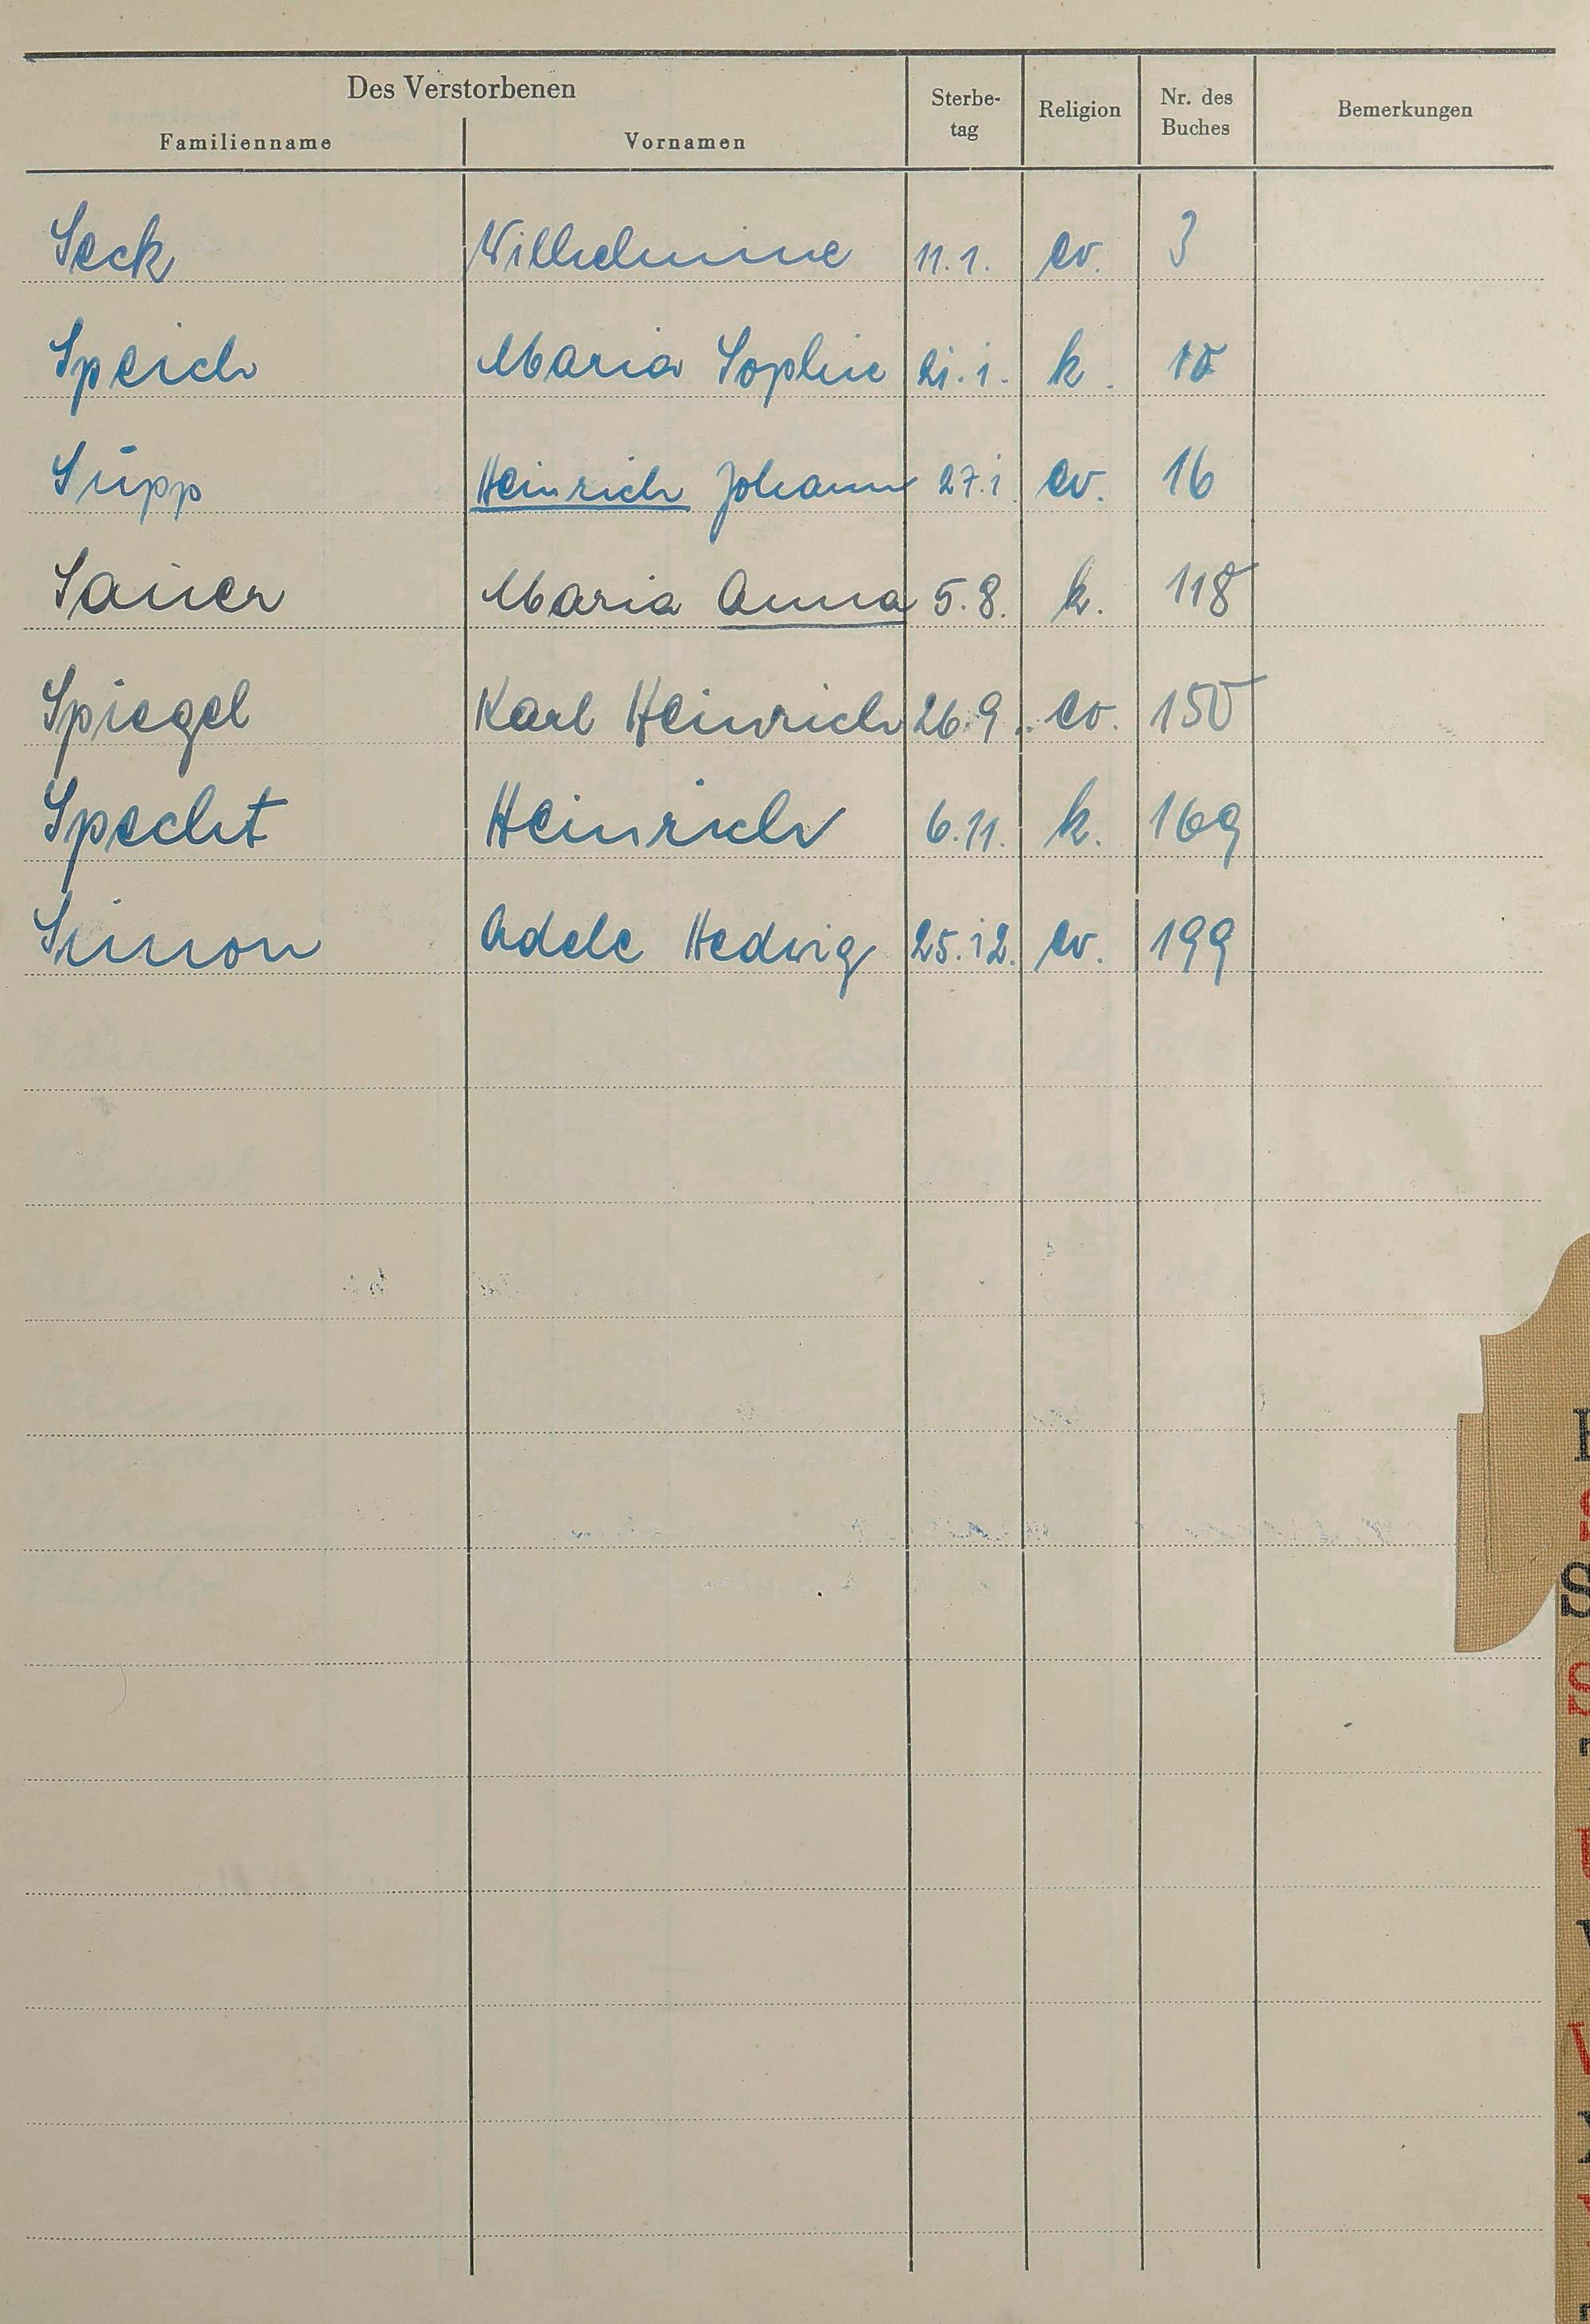 Des Verstorbenen
Familienname Vornamen Sterbe-tag Religion Nr. des Buches Bemerkungen
Seck Wilhelmine 11.1. ev. 3
Speich Maria Sophie 21.1. k. 10
Supp Heinrich Johann 27.1 ev. 16
Sauer Maria Anna 5.8. k. 118
Spiegel Karl Heinrich 26.9. ev. 150
Specht Heinrich 6.11. k. 169
Simon Adele Hedwig 25.12. ev. 199
S
S